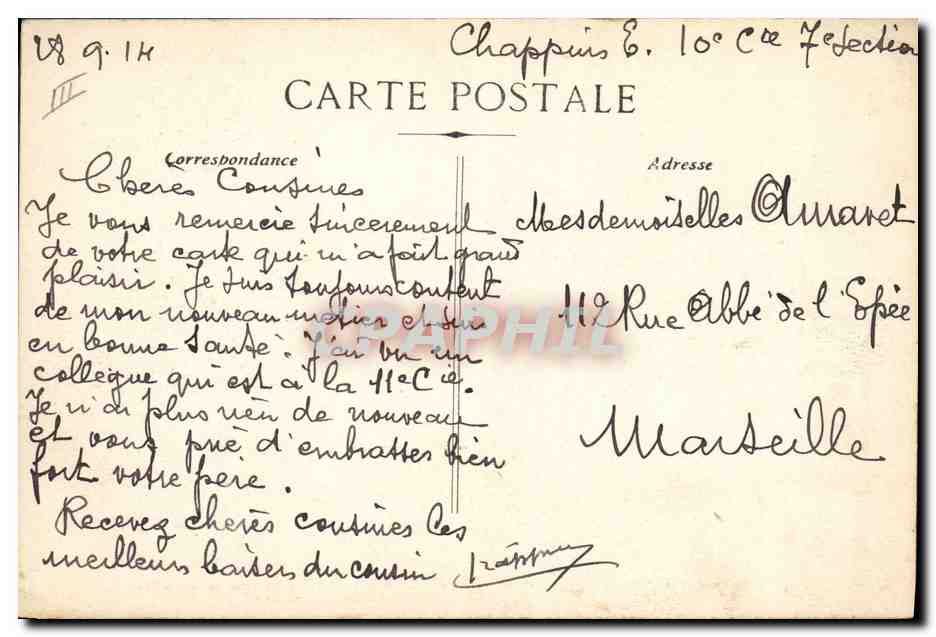 28 9. 14
Chappuis E. 10e Cie 7e Section
III
CARTE POSTALE
Correspondance
Adresse
Cherès Cousines
Je vous remercie sincerement
de votre carte qui m'a fait grand
plaisir. Je suis toujours content
de mon nouveau métier et suis
en bonne santé. J'ai vu un
collègue qui est à la 11e Cie.
Je n'ai plus rien de nouveau
et vous prie d'embrasser bien
fort votre père.
Recevez cherès cousines les
meilleurs baisers du cousin
Mesdemoiselles Amaret
112 Rue Abbé de l'Epée
Marseille